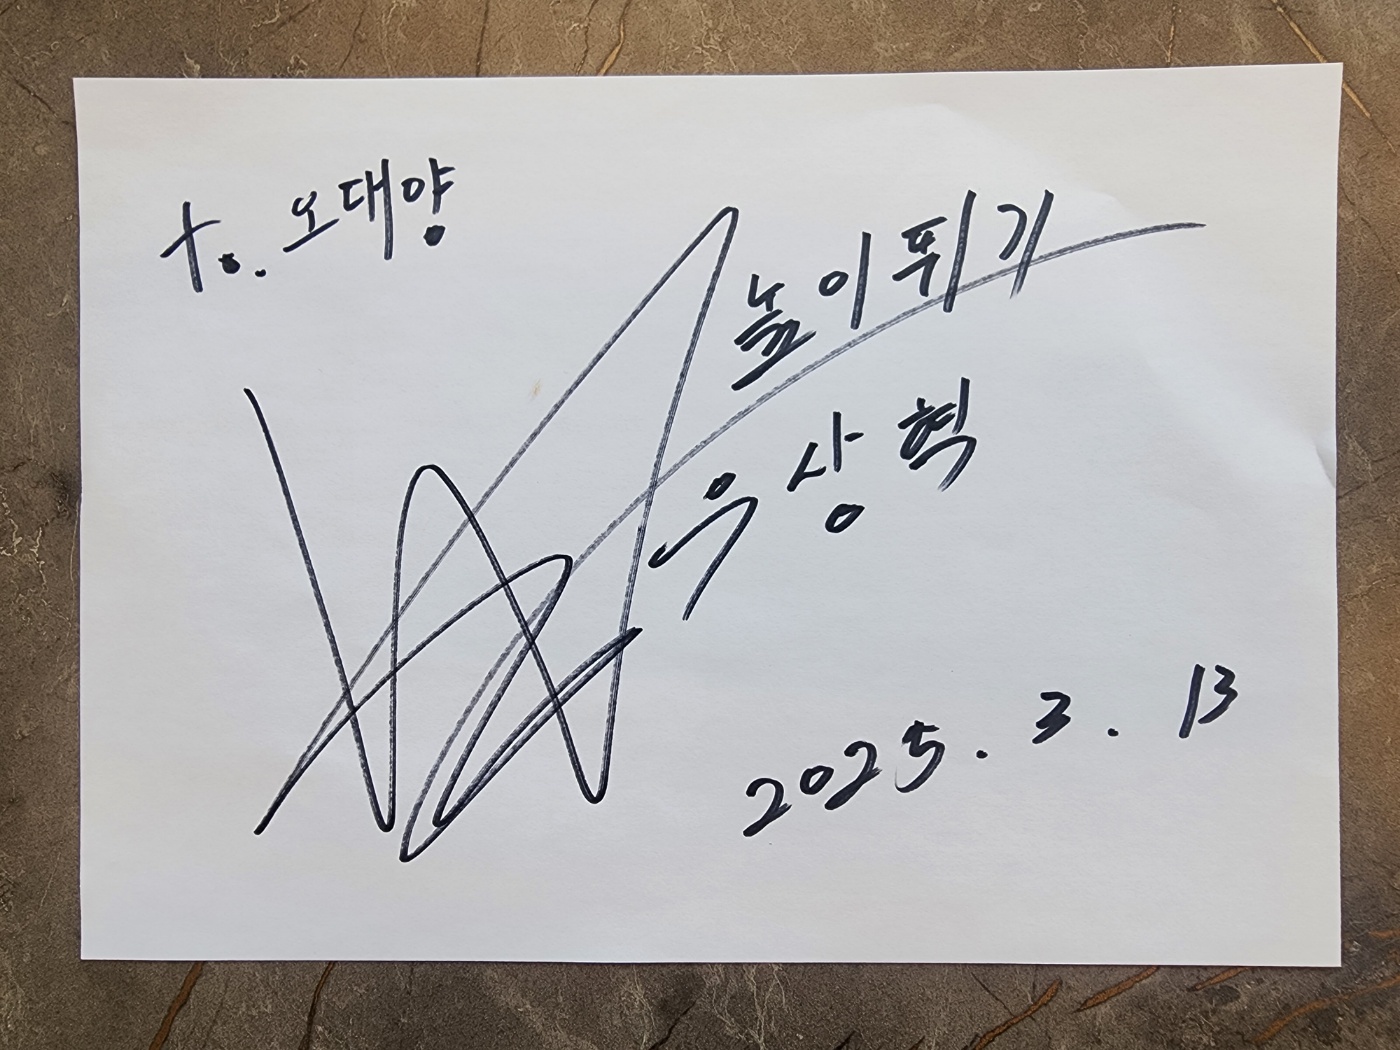 to. 오대양
높이뛰기
우상혁
2025. 3. 13